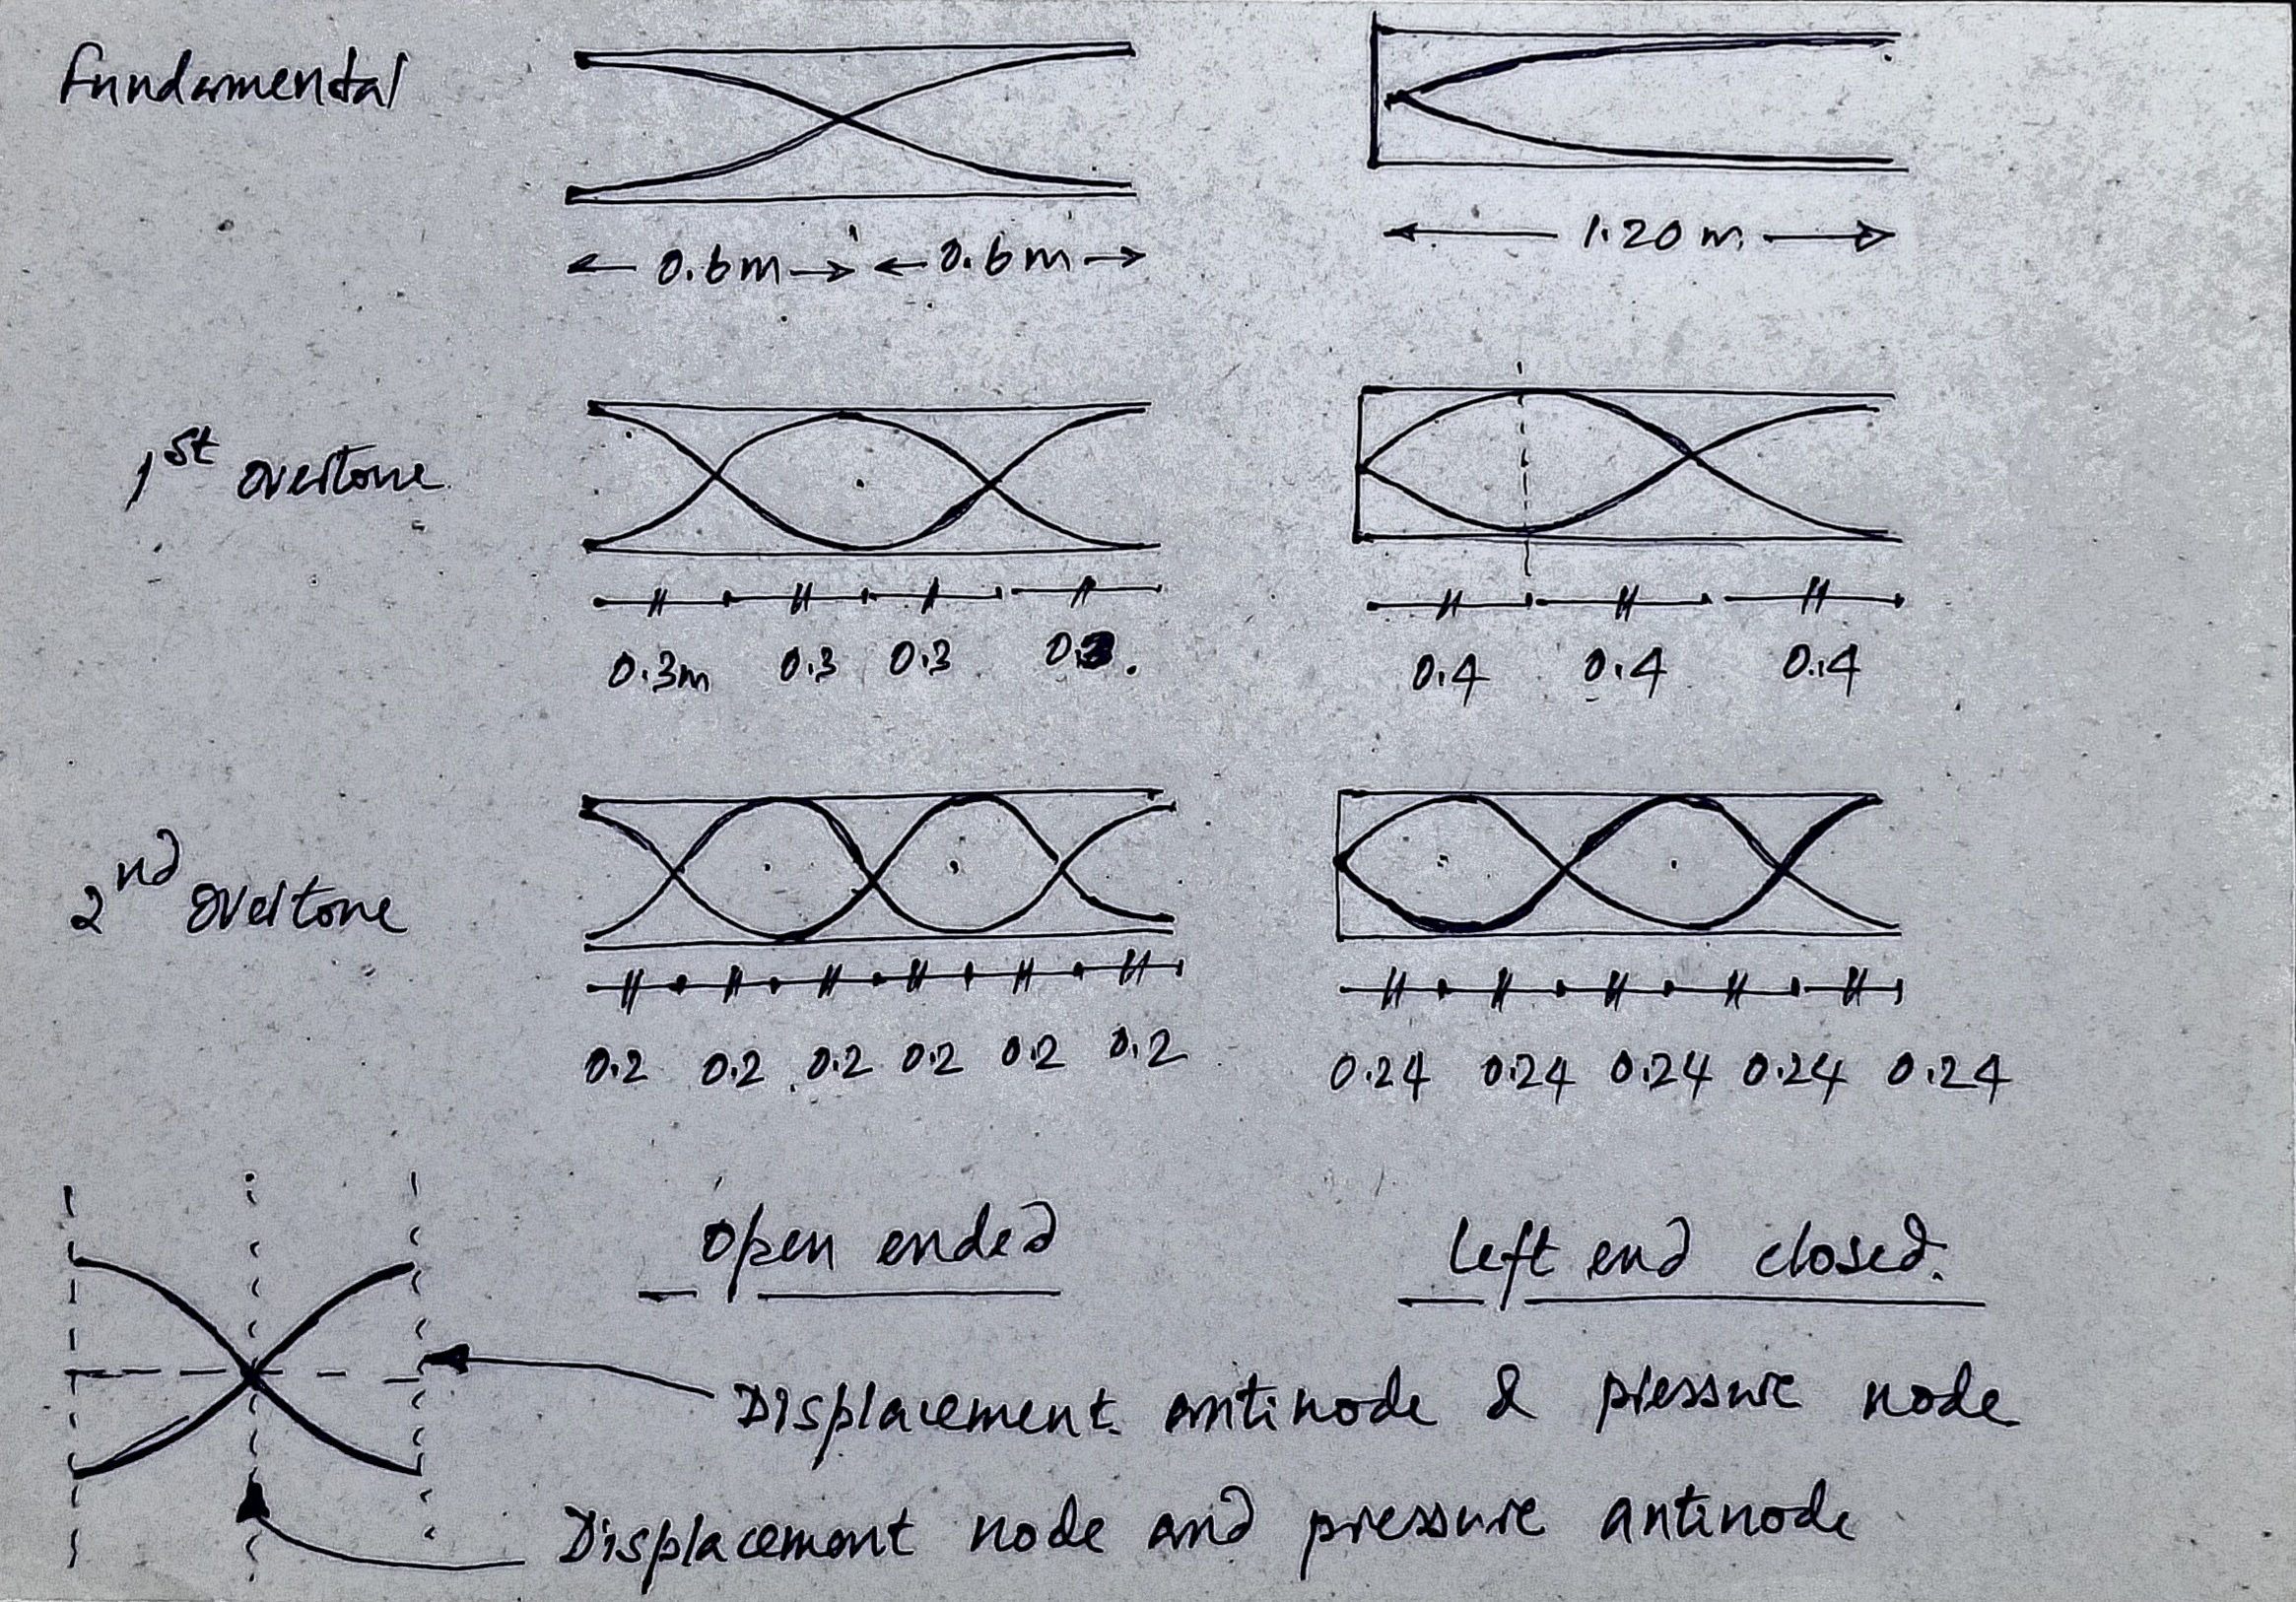 Fundamental
0.6m 0.6m
1.20 m
1st overtone
0.3m 0.3 0.3 0.3.
0.4 0.4 0.4
2nd overtone
0.2 0.2 0.2 0.2 0.2 0.2
0.24 0.24 0.24 0.24 0.24
Open ended
Left end closed.
Displacement antinode & pressure node
Displacement node and pressure antinode